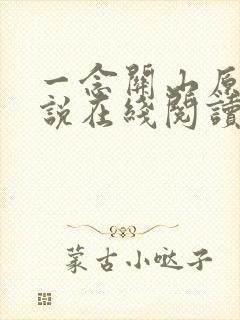 一念關山原
說在綫閱讀
蒙古小哒子